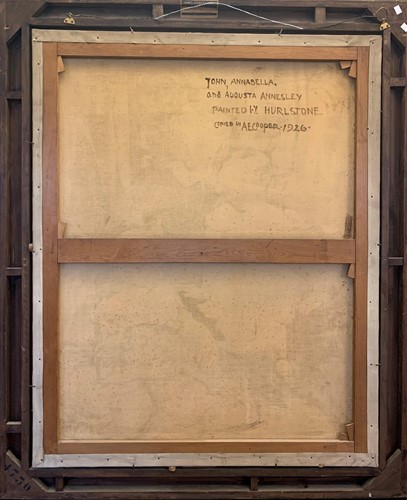 JOHN ANNABELLA,
and AUGUSTA ANNESLEY
PAINTED by HURLSTONE
COPIED by A.E.COOPER.-1926-